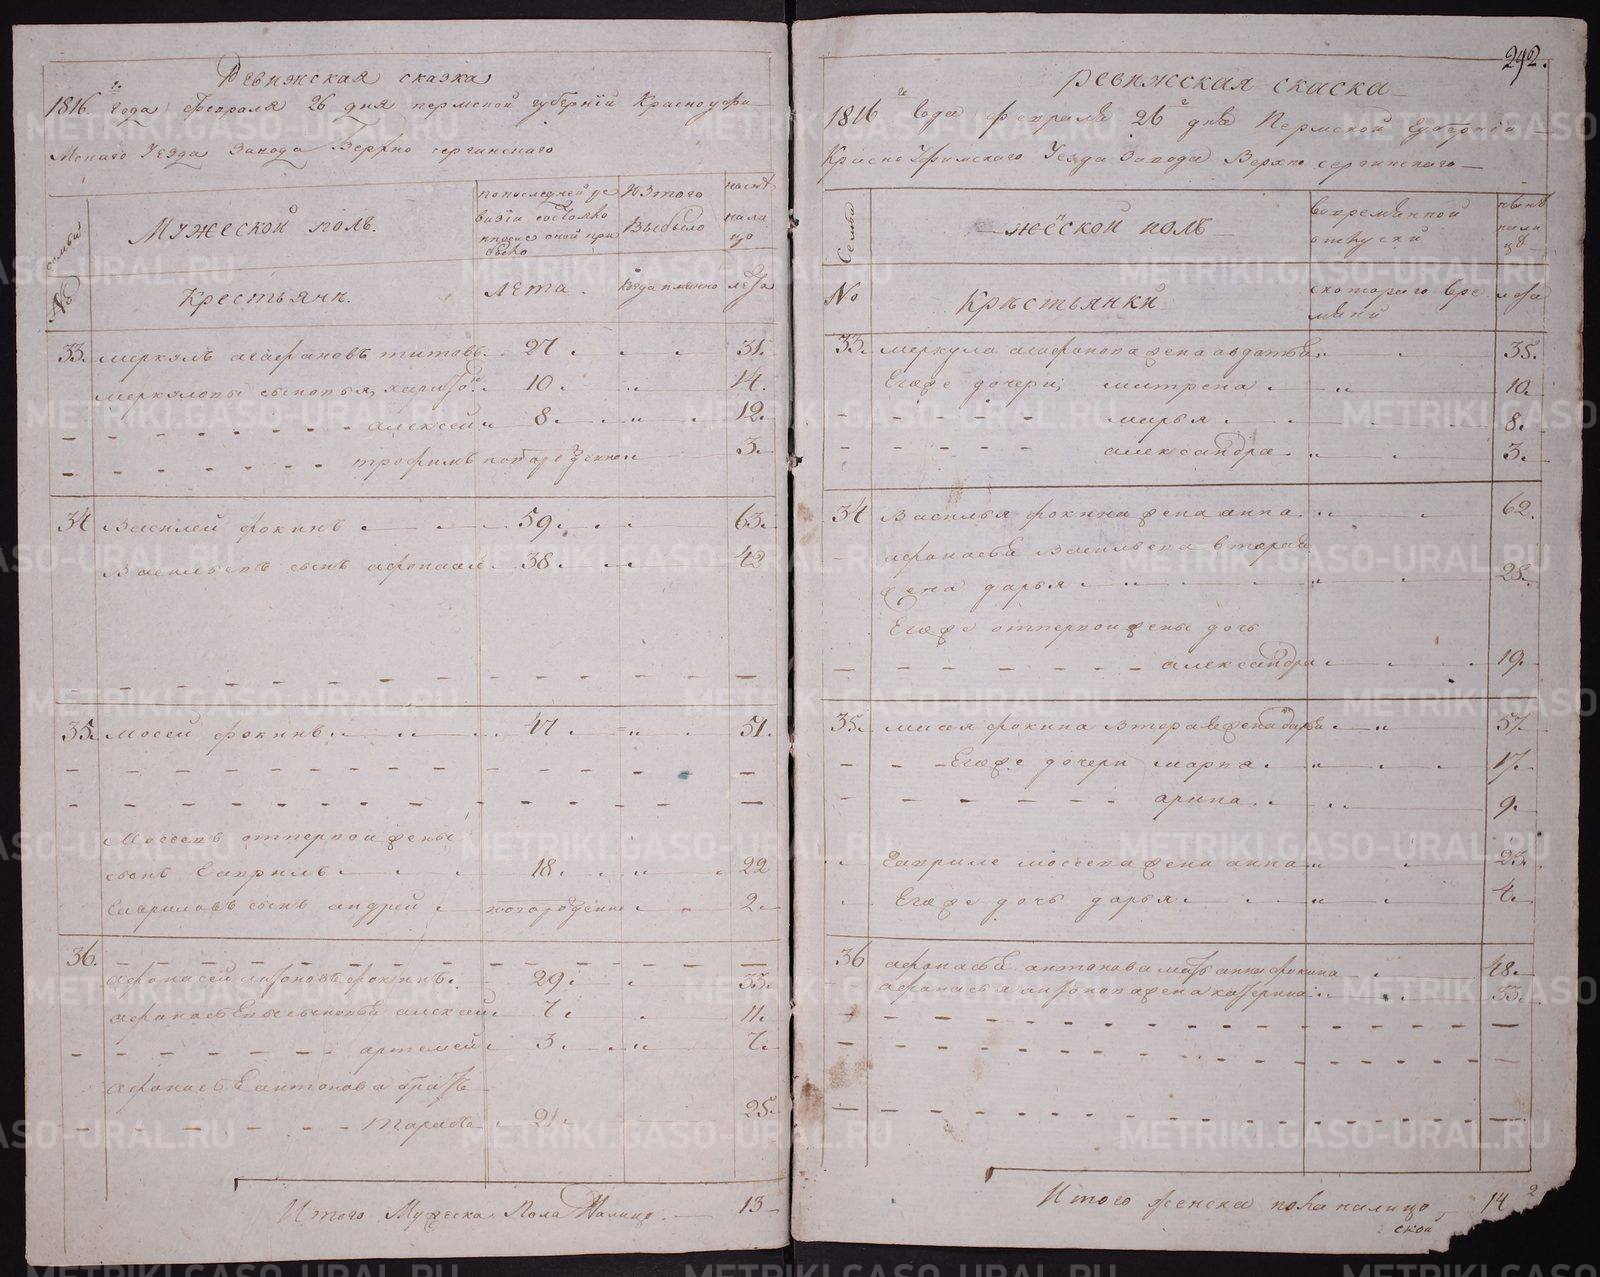 Ревижская сказка
1816го года февраля 26 дня пермской губернїи Красноуфи
мскаго уезда завода Верхно сергинскаго
№ семьи
Мужеской полъ.
по последней ре
визїи состояло
и после оной при
было
Изтого
Выбыло
ныне
на ли
цо
Крестьяне.
лета.
Когда имянно
лета
33. меркулъ агафановъ титовъ 27 31.
меркуловы сыновья, харитон 10. 14.
алексей 8. 12.
трофимъ новорожденной 3.
34 Василей фокинъ 59. 63.
Васильевъ сынъ афонасей 38. 42
35. мосей фокинъ 47. 51.
Моссевъ отпервои жены
сынъ Гаврилъ 18. 22
Гавриловъ сынъ андрей новорожденно 2.
36.
афонасей антоновъ фокинъ 29. 33.
афонасьевы сыновья алексей 7. 11.
артемей 3. 7.
афонасья антонова братъ
Тарасъ 21. 25.
Итого Мужеска Пола Налицо 13
292.
ревижская скаска
1816го года февраля 26го дня Пермской Губернїи
Красно Уфимского Уезда Завода Верхно сергинскаго
Семьи
женской полъ
вовременной
отлуски
ныне
нали
цо
No
Крестьянки
скоторого вре
мяни
лета
33. меркула агафонова жена авдотья 35.
Егоже дочери; матрена 10.
марья 8.
александра 3.
34 Василья фокина жена анна 62.
афонасья Васильева вторая
жена дарья 28.
Егоже отпервои жены дочь
александра 19.
35. мосея фокина вторая жена дарья 57.
Егоже дочери марѳа 17.
арина 9.
Гаврилы моссева жена анна 23.
Егоже дочь дарья 4.
36 афонасья антонова мать анна фокина 48.
афанасья антонова жена катерина 33.
Итого женска пола налицо 14
METRIKI.GASO-URAL.RU